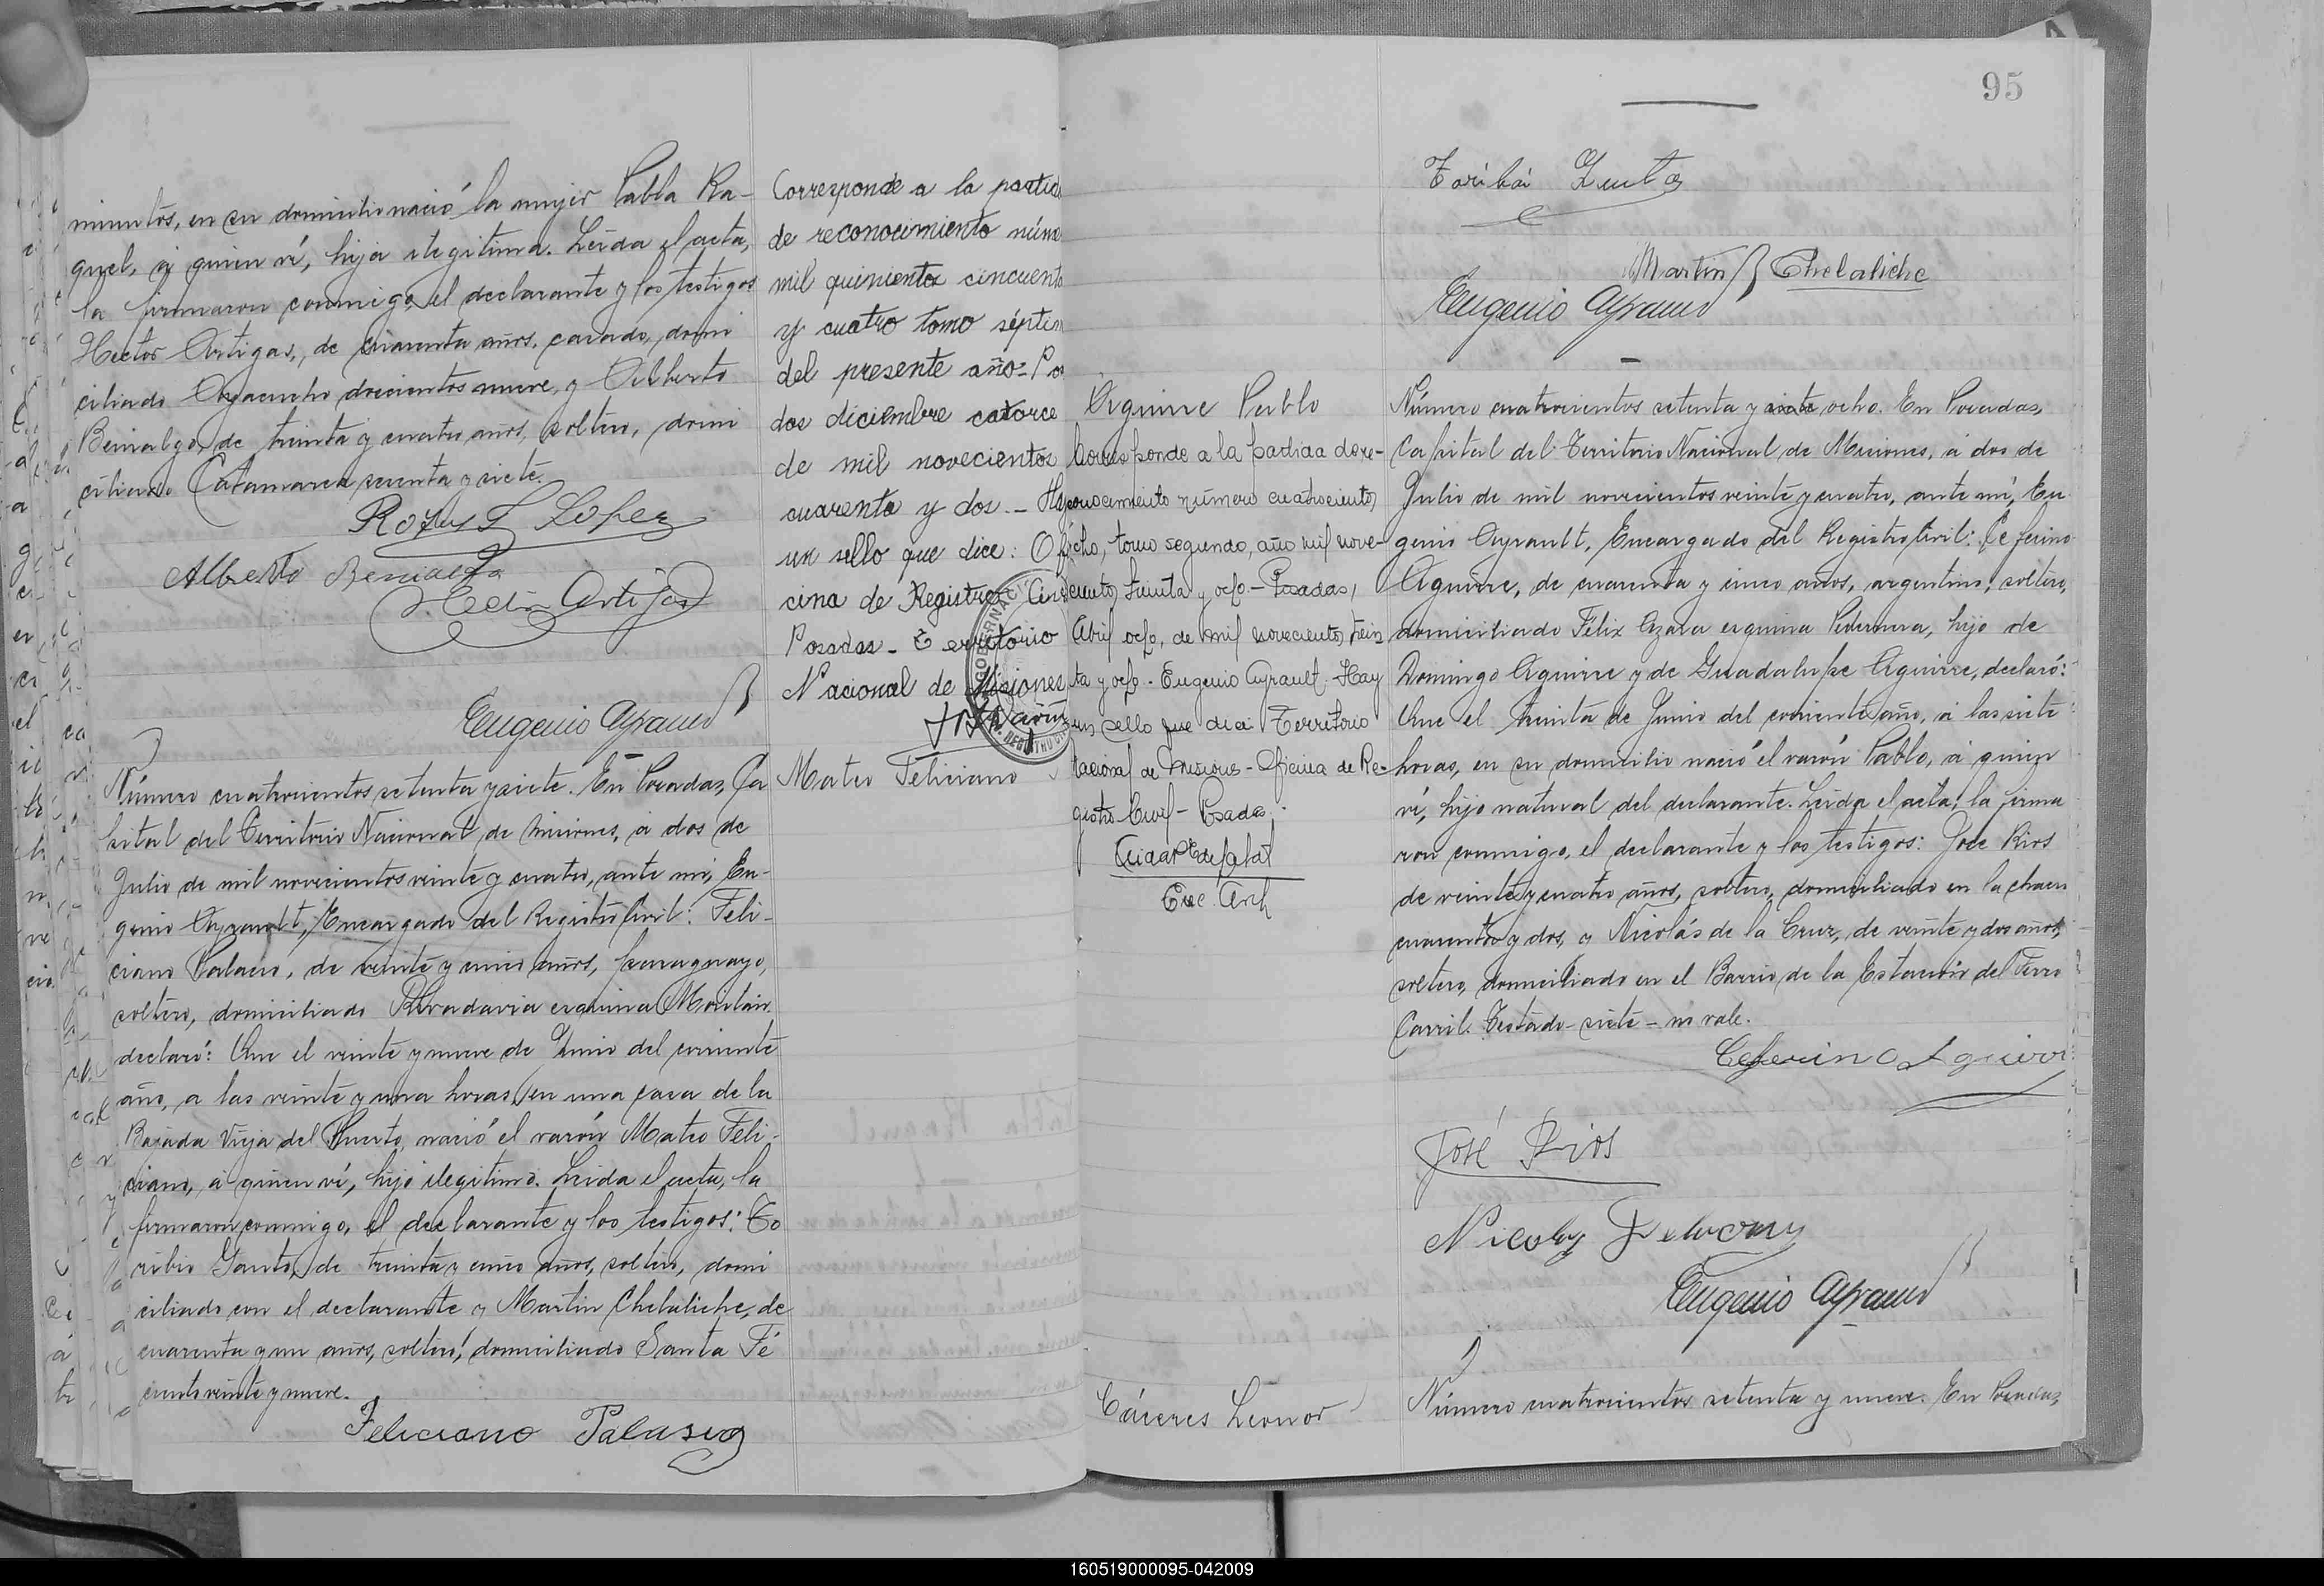 minutos, en su domicilio nació la mujer Pabla Ra-
quel, á quien ví, hija ilegitima. Leída el acta,
la firmaron conmigo, el declarante y los testigos
Hector Artigas, de cuarenta años, casado, domi
ciliado Ayacucho doscientos nueve, y Alberto
de treinta y cuatro años, soltero, domi
ciliado Catamarca sesenta y siete.
Lopez
Alberto
Artigas
Eugenio Ayrault
Número cuatrocientos setenta y siete. En Posadas, Ca
pital del Territorio Nacional de Misiones, á dos de
Julio de mil novecientos veinte y cuatro, ante mí, Eu-
genio Ayrault, Encargado del Registro Civil: Feli-
ciano Palacio, de veinte y cinco años, paraguayo,
soltero, domiciliado Rivadavia esquina
declaró: Que el veinte y nueve de Junio del corriente
año, a las veinte y una horas, en una casa de la
Bajada Vieja del Puerto, nació el varón Mateo Feli-
ciano, á quien ví, hijo ilegitimo. Leida el acta, la
firmaron conmigo, el declarante y los testigos: To
ribio de treinta y cinco años, soltero, domi
ciliado con el declarante y Martin Chelaliche, de
cuarenta y un años, soltero, domiciliado Santa Fé
ciento veinte y nueve.
Feliciano Palasio
Corresponde a la partid
de reconocimiento núme
mil quinientos cincuenta
y cuatro tomo séptim
del presente año= Po
das diciembre catorce
de mil novecientos
cuarenta y dos._ Hay
un sello que dice: Ofi
cina de Registro Civi
Posadas_ Territorio
Nacional de Misiones
Mateo Feliciano
95
Martin Chelaliche
Eugenio Ayrault
Aguirre Pablo
Corresponde a la partida de re-
conocimiento número cuatrocientos
ocho, tomo segundo, año mil nove-
cientos treinta y ocho.- Posadas,
Abril ocho, de mil novecientos trein
ta y ocho.- Eugenio Ayrault. Hay
un sello que dice Territorio
Nacional de Misiones- Oficina de Re-
gistro Civil- Posadas.
Enc. Arch
Número cuatrocientos setenta y siete ocho. En Posadas,
Capital del Territorio Nacional de Misiones, á dos de
Julio de mil novecientos veinte y cuatro, ante mí, Eu
genio Ayrault, Encargado del Registro Civil: Ceferino
Aguirre, de cuarenta y cinco años, argentino, soltero,
domiciliado Félix Azara esquina Pedernera, hijo de
Domingo Aguirre y de Guadalupe Aguirre, declaró:
Que el treinta de Junio del corriente año, á las siete
horas, en su domicilio nació el varón Pablo, á quien
ví, hijo natural del declarante. Leida el acta, la firma
ron conmigo, el declarante y los testigos: Jose Rios
de veinte y cuatro años, soltero, domiciliado en la chacra
cuarenta y dos, y Nicolás de la Cruz, de veinte y dos años,
soltero, domiciliado en el Barrio de la Estación del Ferro
Carril. Testado- siete- no vale.
Ceferino Aguirre
José Rios
Nicolas Delacruz
Eugenio Ayrault
Cáceres Leonor
Número cuatrocientos setenta y nueve. En Posadas,
160519000095-042009